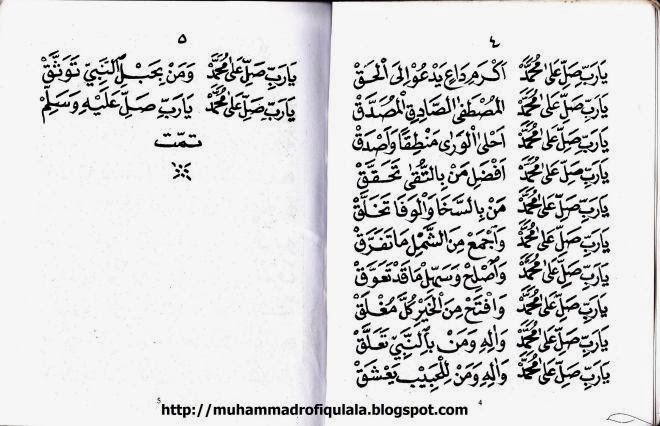 ٤
يَارَبِّ صَلِّ عَلَى مُحَمَّدْ اَكْرَمِ دَاعٍ يَدْعُوْ اِلَى الْحَقْ
يَارَبِّ صَلِّ عَلَى مُحَمَّدْ اَلْمُصْطَفَى الصَّادِقِ الْمُصَدَّقْ
يَارَبِّ صَلِّ عَلَى مُحَمَّدْ اَحْلَى الْوَرَى مَنْطِقًا وَاَصْدَقْ
يَارَبِّ صَلِّ عَلَى مُحَمَّدْ اَفْضَلِ مَنْ بِالتُّقَى تَحَقَّقْ
يَارَبِّ صَلِّ عَلَى مُحَمَّدْ مَنْ بِالسَّخَا وَالْوَفَا تَخَلَّقْ
يَارَبِّ صَلِّ عَلَى مُحَمَّدْ وَاجْمَعْ مِنَ الشَّمْلِ مَا تَفَرَّقْ
يَارَبِّ صَلِّ عَلَى مُحَمَّدْ وَاَصْلِحْ وَسَهِّلْ مَا قَدْ تَعَوَّقْ
يَارَبِّ صَلِّ عَلَى مُحَمَّدْ وَافْتَحْ مِنَ الْخَيْرِ كُلَّ مُغْلَقْ
يَارَبِّ صَلِّ عَلَى مُحَمَّدْ وَاٰلِهِ وَمَنْ بِالنَّبِيِّ تَعَلَّقْ
يَارَبِّ صَلِّ عَلَى مُحَمَّدْ وَاٰلِهِ وَمَنْ لِلْحَبِيْبِ يَعْشَقْ
4
٥
يَارَبِّ صَلِّ عَلَى مُحَمَّدْ وَمَنْ بِحَبْلِ النَّبِيِّ تَوَثَّقْ
يَارَبِّ صَلِّ عَلَى مُحَمَّدْ يَارَبِّ صَلِّ عَلَيْهِ وَسَلِّمْ
تمت
5
http://muhammadrofiqulala.blogspot.com